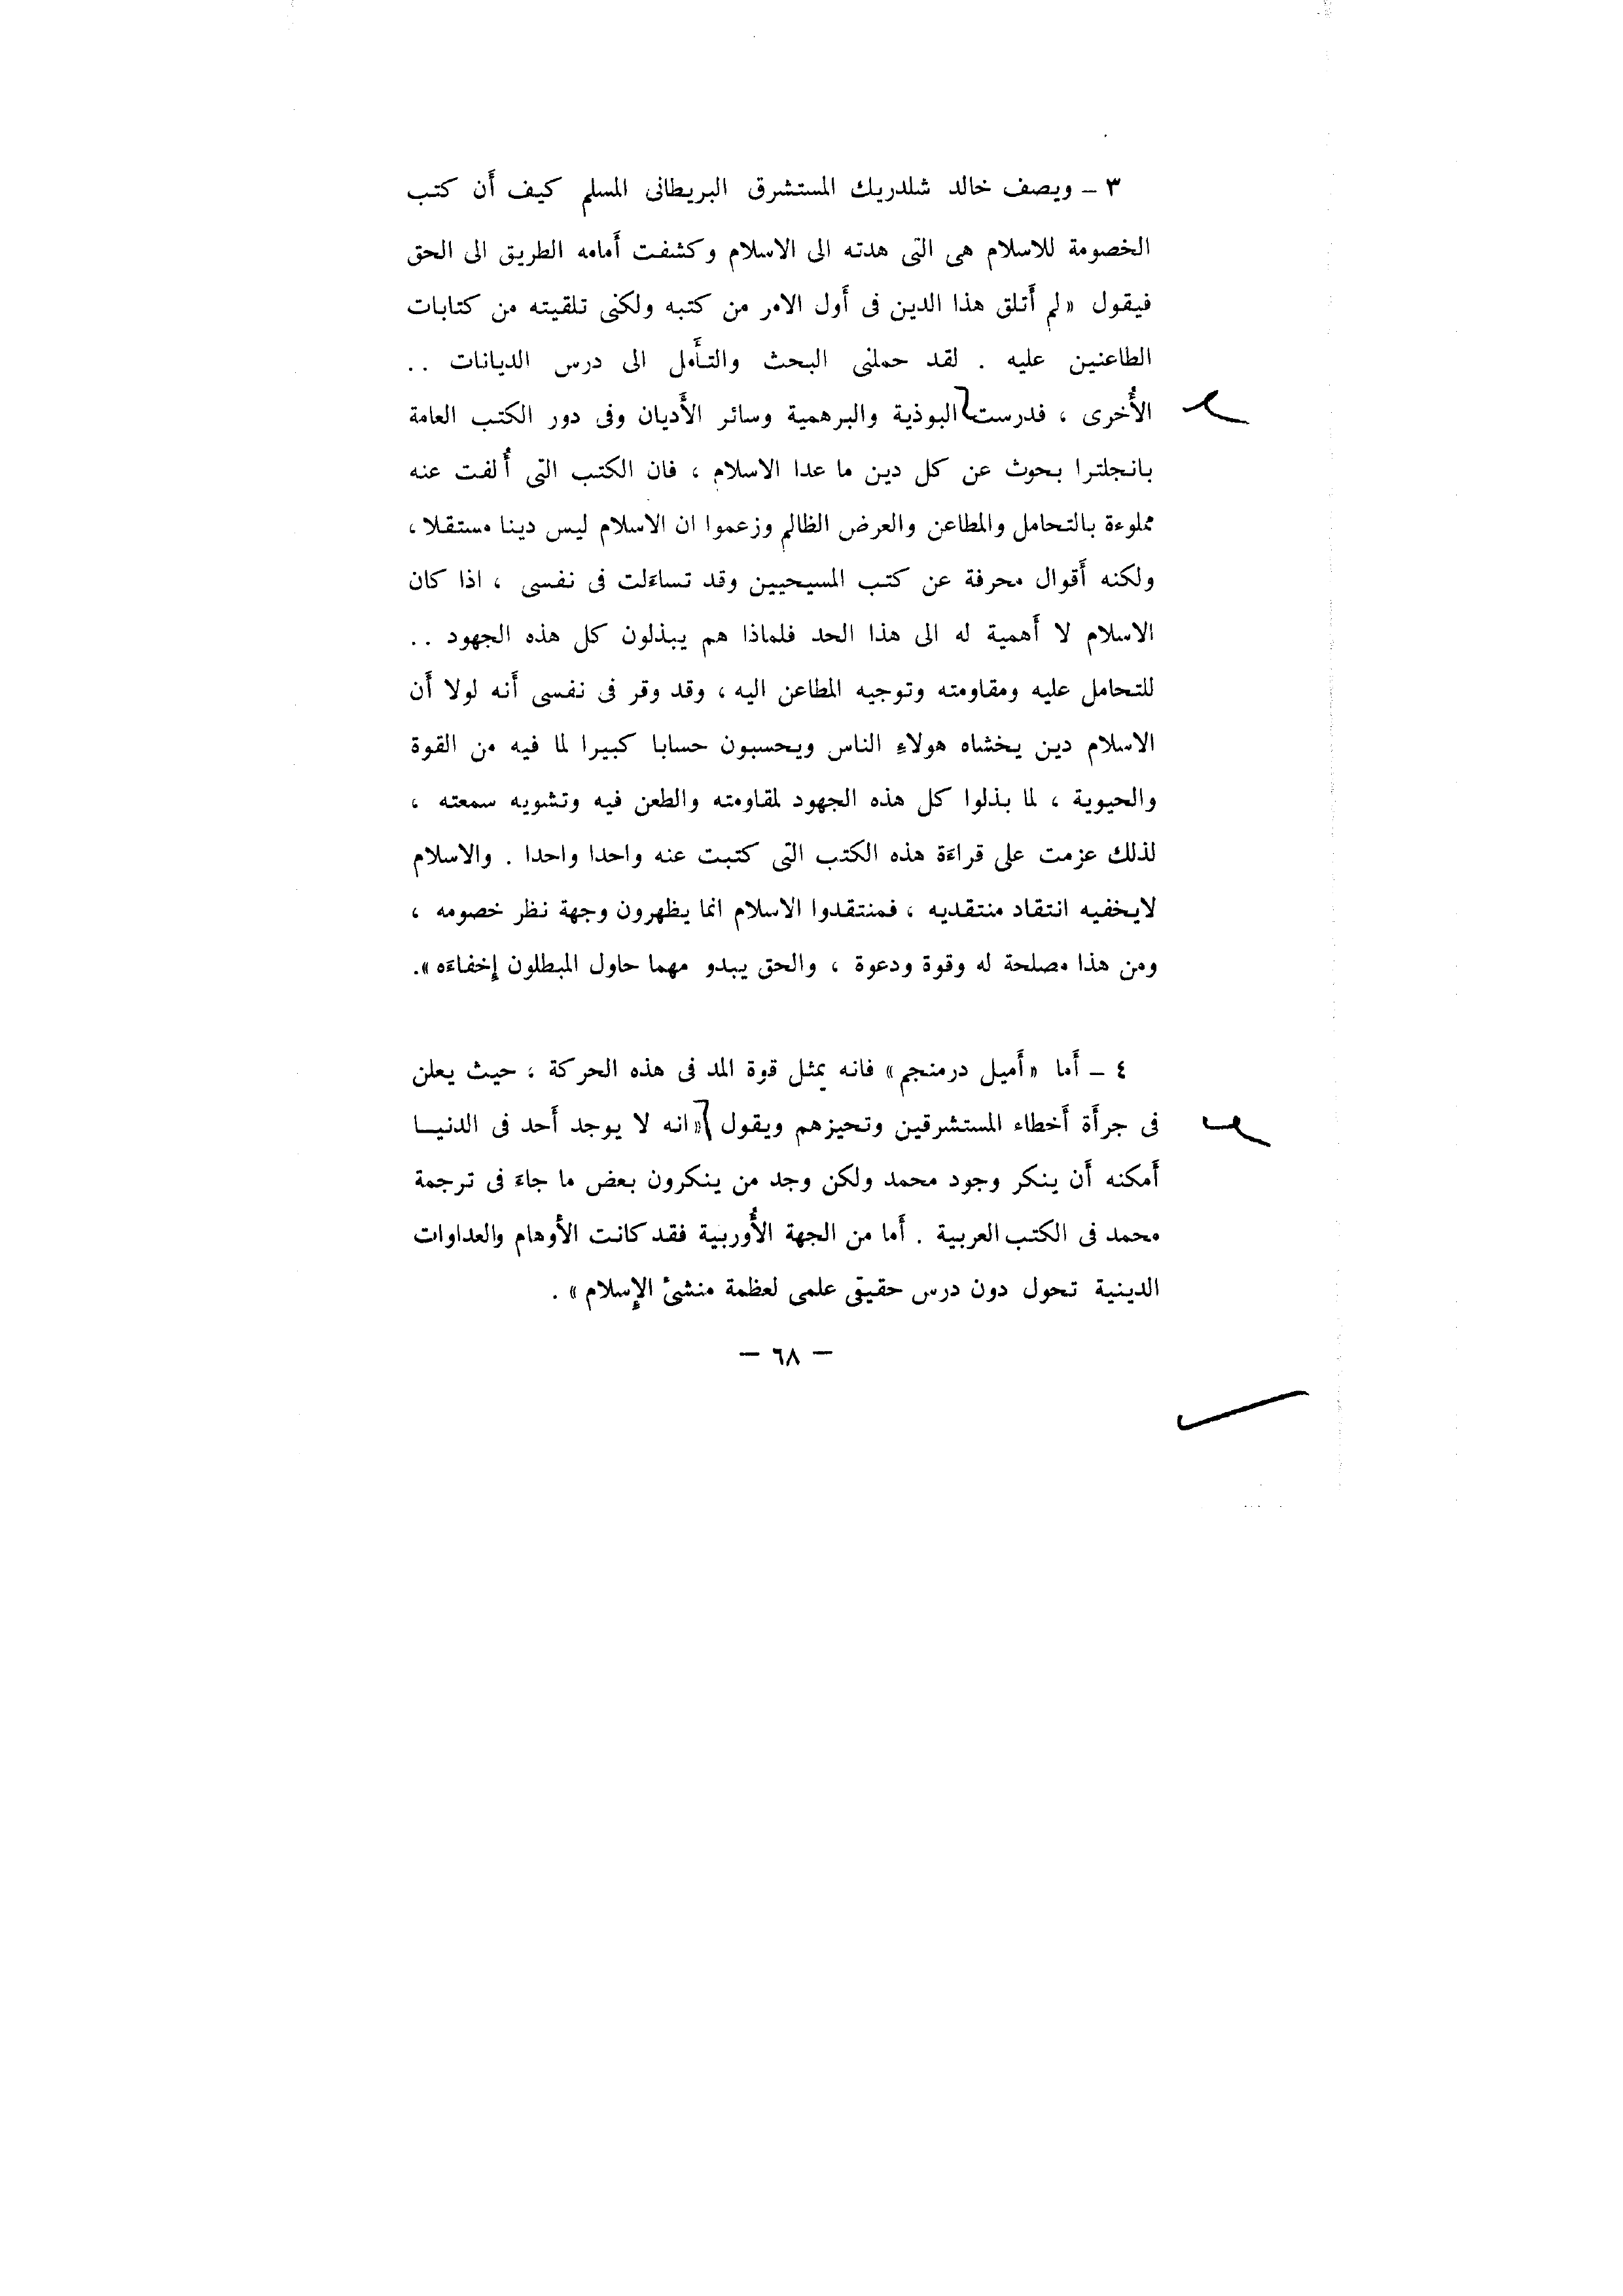 ٣ ــ ويصف خالد شلدريك المستشرق البريطانى المسلم كيف أَن كتب
الخصومة للاسلام هى التى هدته الى الاسلام وكشفت أَمامه الطريق الى الحق
فيقول « لم أَتلق هذا الدين فى أَول الامر من كتبه ولكنى تلقيته من كتابات
الطاعنين عليه . لقد حملنى البحث والتأَمل الى درس الديانات . .
الأُخرى ، فدرست البوذية والبرهمية وسائر الأَديان وفى دور الكتب العامة
بانجلترا بحوث عن كل دين ما عدا الاسلام ، فان الكتب التى أُلفت عنه
مملوءة بالتحامل والمطاعن والعرض الظالم وزعموا ان الاسلام ليس دينا مستقلا ،
ولكنه أَقوال محرفة عن كتب المسيحيين وقد تساءَلت فى نفسى ، اذا كان
الاسلام لا أَهمية له الى هذا الحد فلماذا هم يبذلون كل هذه الجهود . .
للتحامل عليه ومقاومته وتوجيه المطاعن اليه ، وقد وقر فى نفسى أَنه لولا أَن
الاسلام دين يخشاه هولاءِ الناس ويحسبون حسابا كبيرا لما فيه من القوة
والحيوية ، لما بذلوا كل هذه الجهود لمقاومته والطعن فيه وتشويه سمعته ،
لذلك عزمت على قراءَة هذه الكتب التى كتبت عنه واحدا واحدا . والاسلام
لايخفيه انتقاد منتقديه ، فمنتقدوا الاسلام انما يظهرون وجهة نظر خصومه ،
ومن هذا مصلحة له وقوة ودعوة ، والحق يبدو مهما حاول المبطلون إخفاءَه ».
٤ ــ أَما « أَميل درمنجم » فانه يمثل قوة المد فى هذه الحركة ، حيث يعلن
فى جرأَة أَخطاء المستشرقين وتحيزهم ويقول « انه لا يوجد أَحد فى الدنيــا
أَمكنه أَن ينكر وجود محمد ولكن وجد من ينكرون بعض ما جاءَ فى ترجمة
محمد فى الكتب العربية . أَما من الجهة الأُوربية فقد كانت الأَوهام والعداوات
الدينية تحول دون درس حقيقى علمى لعظمة منشئ الإِسلام » .
— ٦٨ —